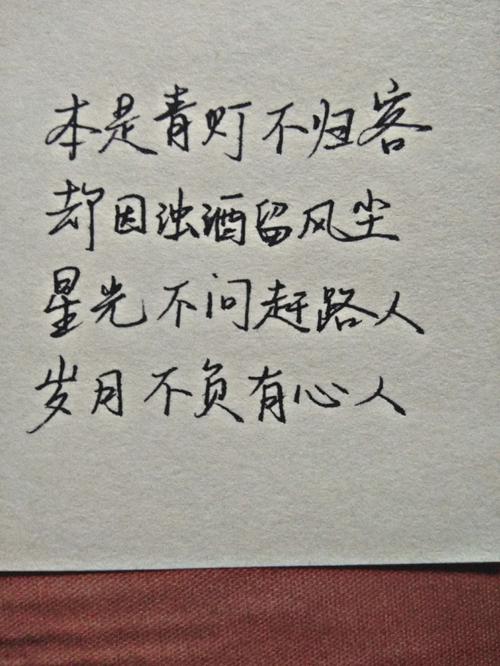 本是青灯不归客
却因浊酒留风尘
星光不问赶路人
岁月不负有心人